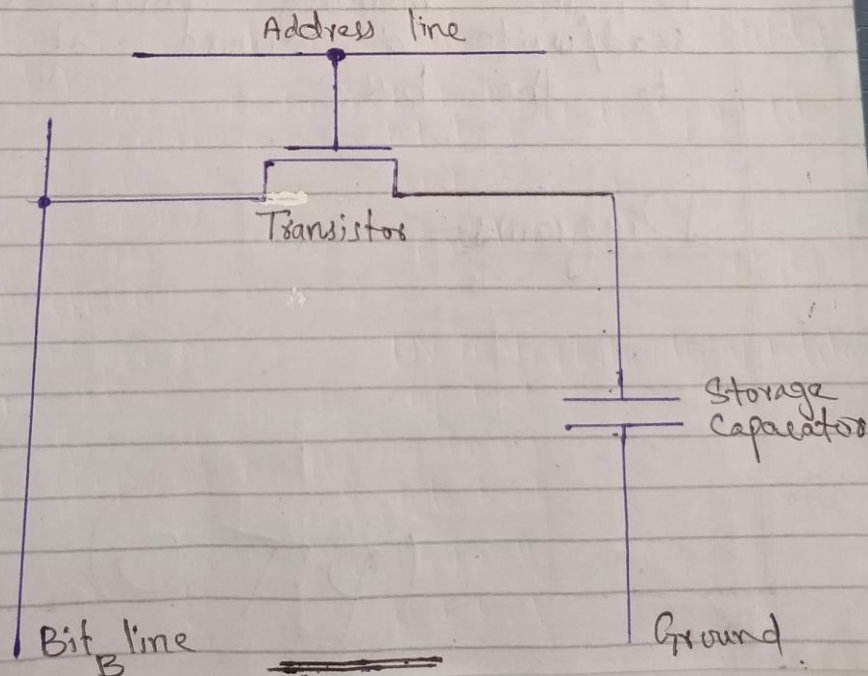 Address line
Transistor
Storage
Capacator
Bit line
B
Ground